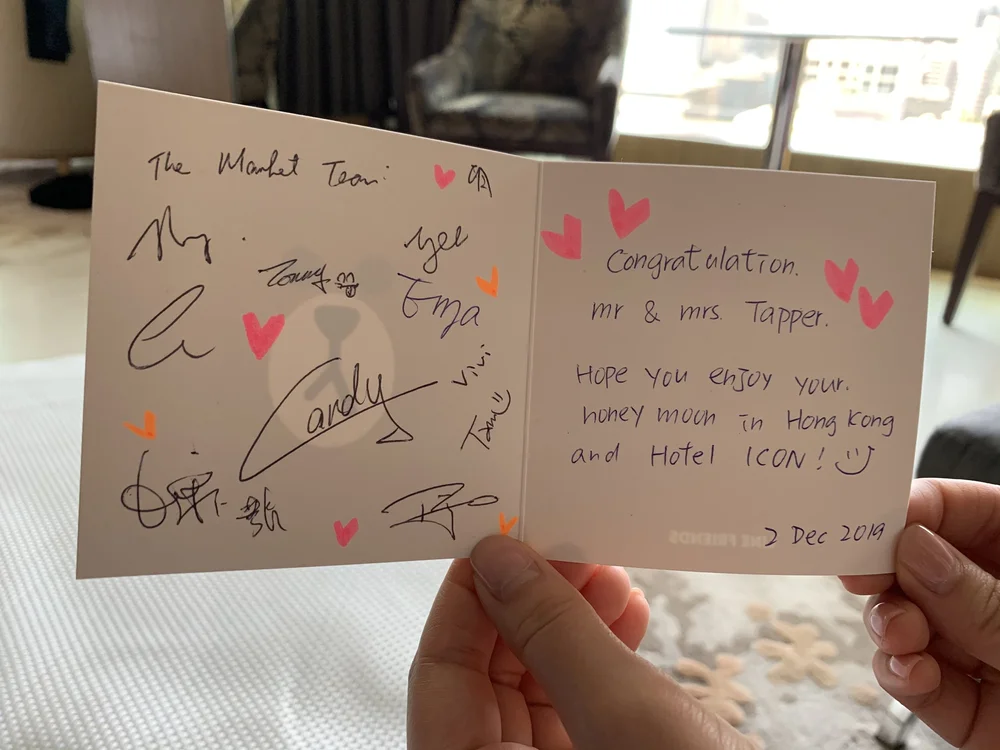 The Market Team:
明
yee
Tommy
Ema
Candy
Vivi
Tom
Congratulation.
mr & mrs. Tapper.
Hope you enjoy your.
honey moon in Hong Kong
and Hotel ICON!
2 Dec 2019